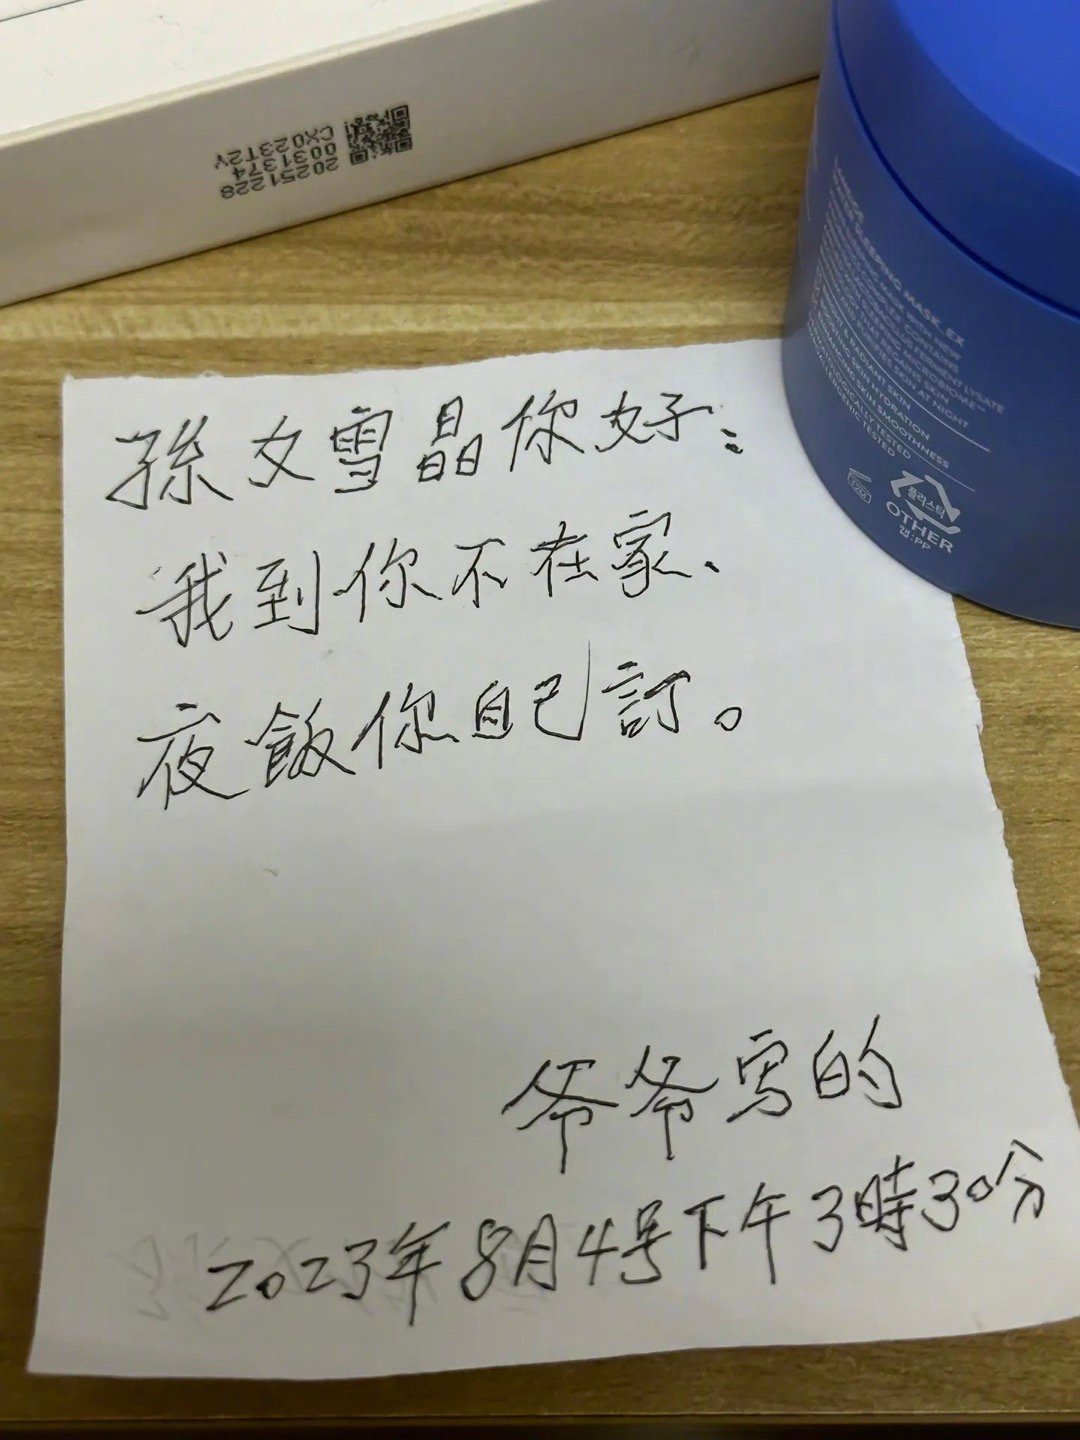 20251228
0031374
CX023T2Y
SLEEPING MASK_EX
OTHER
캡:PP
플라스틱
孫女雪晶你好：
我到你不在家、
夜飯你自己訂。
爷爷写的
2023年8月4号下午3時30分